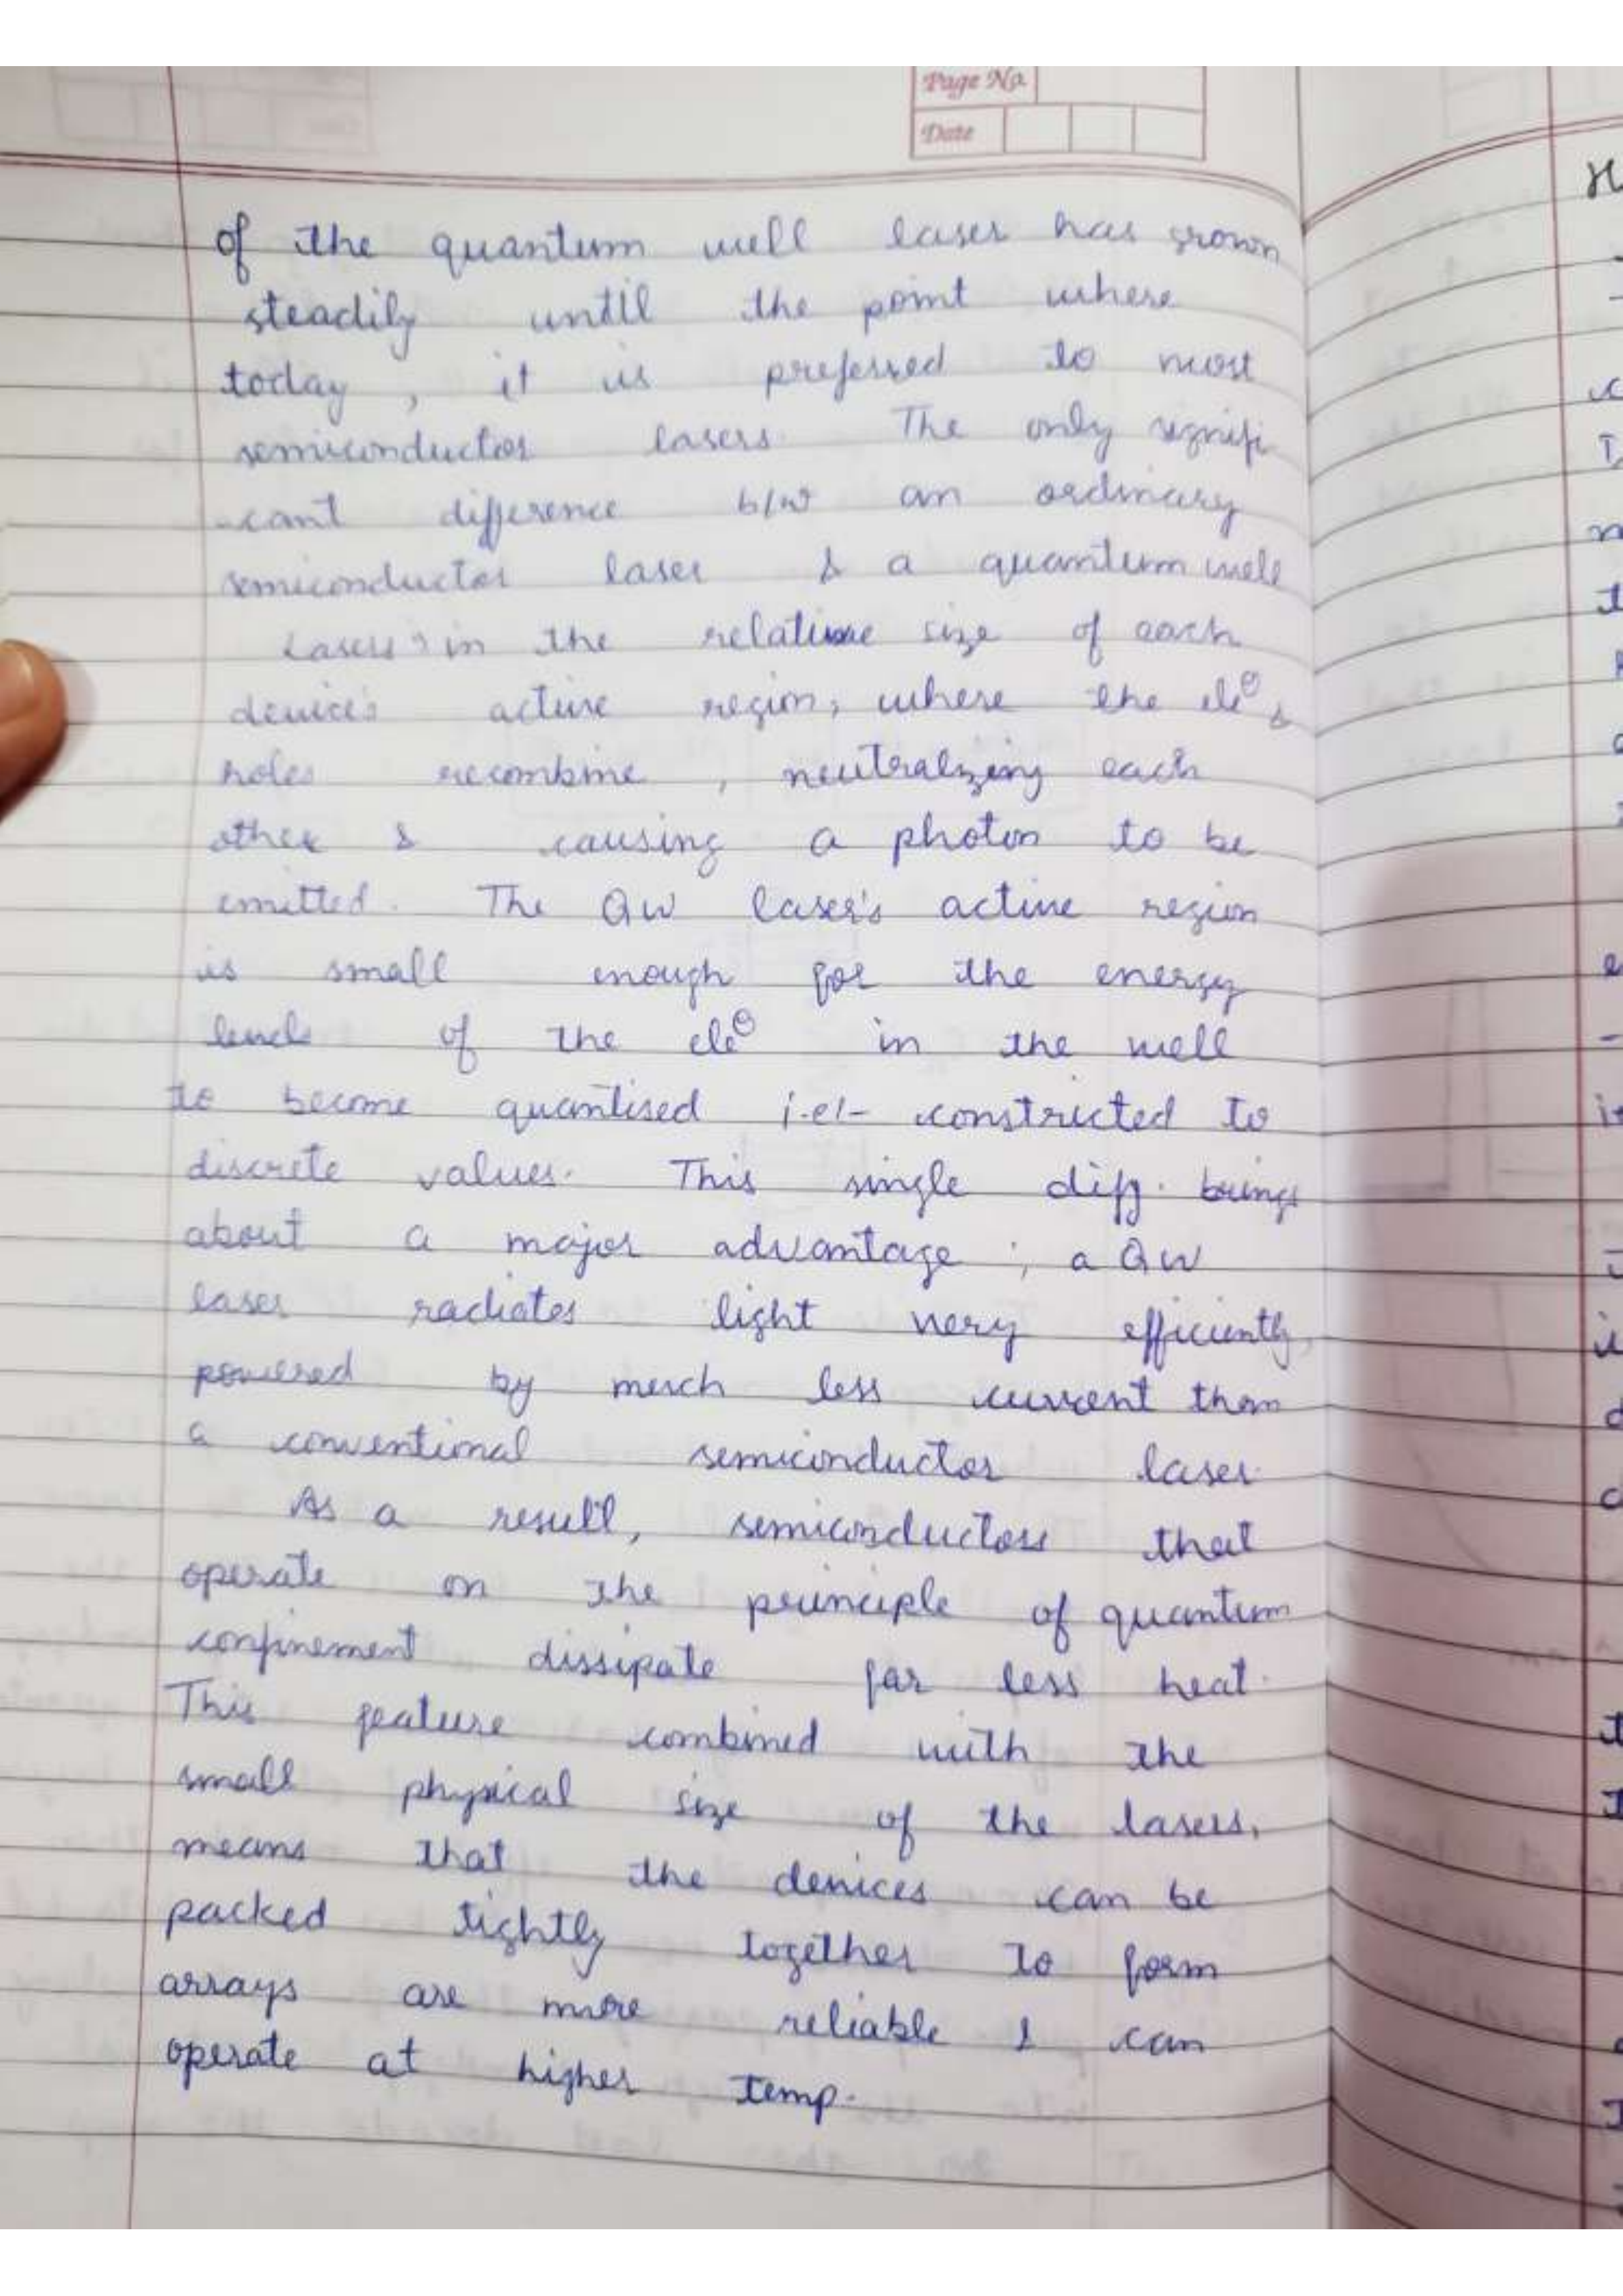 Page No.
Date
of the quantum well laser has grown
steadily until the point where
today, it is preferred to most
semiconductor lasers. The only signifi
-cant difference b/w an ordinary
semiconductor laser & a quantum well
Laser is in the relative size of each
device's active region, where the ele⊖ &
holes recombine, neutralizing each
other & causing a photon to be
emitted. The QW laser's active region
is small enough for the energy
levels of the ele⊖ in the well
to become quantised i.e:- constricted to
discrete values. This single diff. brings
about a major advantage; a QW
laser radiates light very efficiently,
powered by much less current than
a conventional semiconductor laser.
As a result, semiconductors that
operate on the principle of quantum
confinement dissipate far less heat.
This feature combined with the
small physical size of the lasers,
means that the devices can be
packed tightly together to form
arrays are more reliable & can
operate at higher temp.